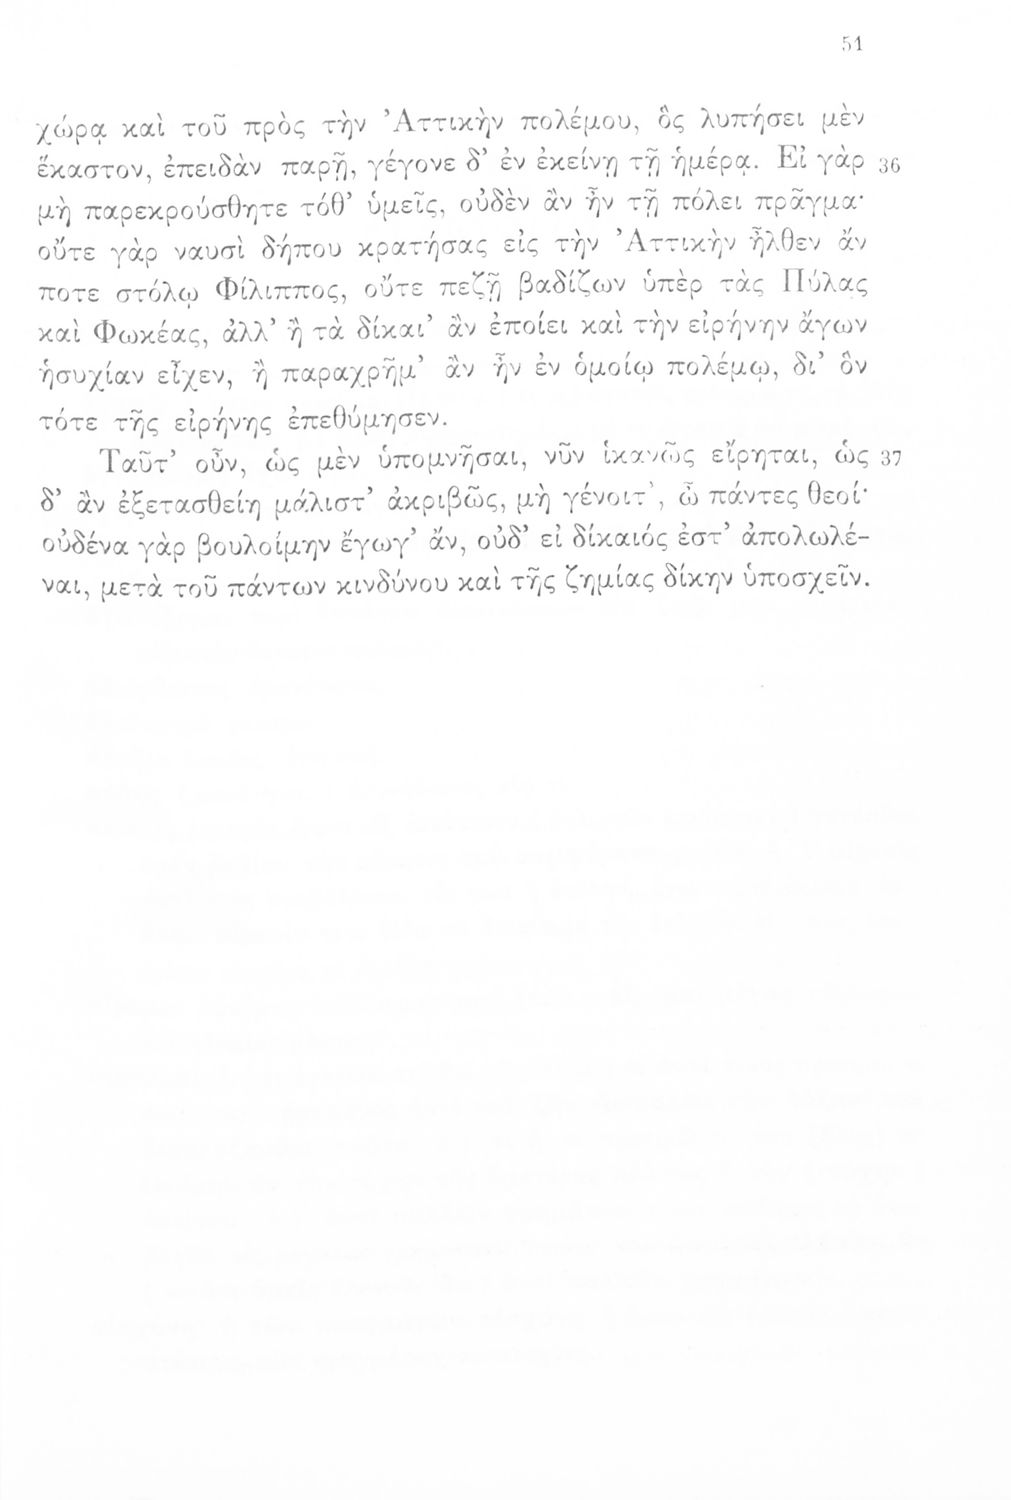 51
χώρᾳ καὶ τοῦ πρὸς τὴν Ἀττικὴν πολέμου, ὃς λυπήσει μὲν
ἕκαστον, ἐπειδὰν παρῇ, γέγονε δ’ ἐν ἐκείνῃ τῇ ἡμέρᾳ. Εἰ γὰρ 36
μὴ παρεκρούσθητε τόθ’ ὑμεῖς, οὐδὲν ἂν ἦν τῇ πόλει πρᾶγμα·
οὔτε γὰρ ναυσὶ δήπου κρατήσας εἰς τὴν Ἀττικὴν ἦλθεν ἄν
ποτε στόλῳ Φίλιππος, οὔτε πεζῇ βαδίζων ὑπὲρ τὰς Πύλας
καὶ Φωκέας, ἀλλ’ ἢ τὰ δίκαι’ ἂν ἐποίει καὶ τὴν εἰρήνην ἄγων
ἡσυχίαν εἶχεν, ἢ παραχρῆμ’ ἂν ἦν ἐν ὁμοίῳ πολέμῳ, δι’ ὃν
τότε τῆς εἰρήνης ἐπεθύμησεν.
Ταῦτ’ οὖν, ὡς μὲν ὑπομνῆσαι, νῦν ἱκανῶς εἴρηται, ὡς 37
δ’ ἂν ἐξετασθείη μάλιστ’ ἀκριβῶς, μὴ γένοιτ’, ὦ πάντες θεοί·
οὐδένα γὰρ βουλοίμην ἔγωγ’ ἄν, οὐδ’ εἰ δίκαιός ἐστ’ ἀπολωλέ-
ναι, μετὰ τοῦ πάντων κινδύνου καὶ τῆς ζημίας δίκην ὑποσχεῖν.